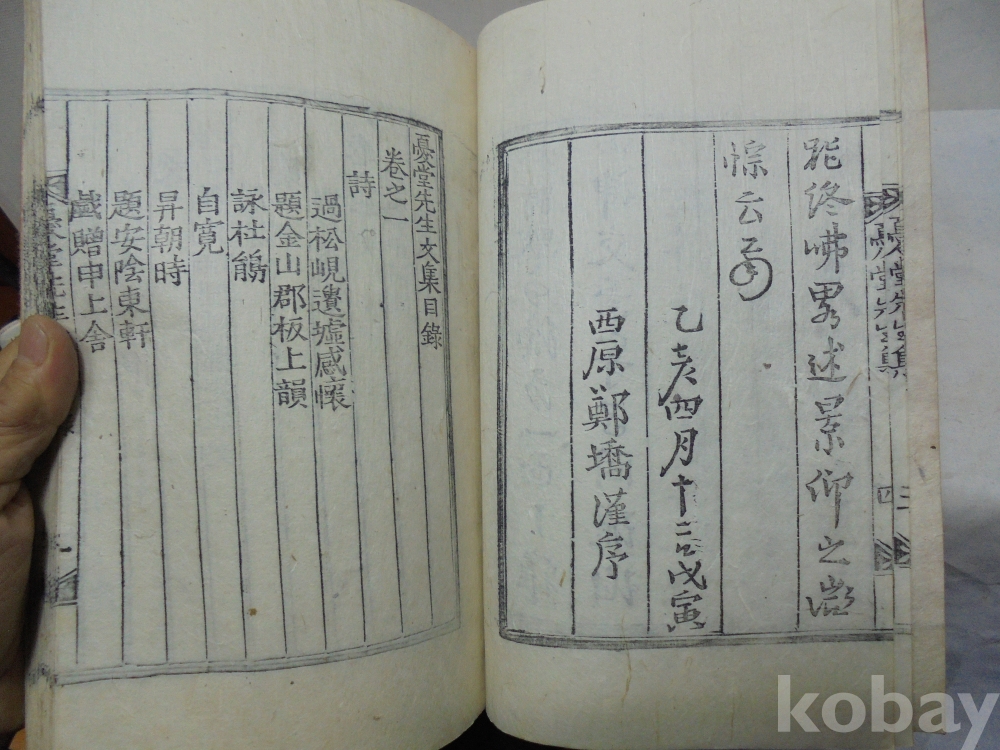 憂堂先生文集
四
能終咈畧述景仰之微
悰云爾
乙亥四月十二日戊寅
西原鄭墧謹序
憂堂先生文集目錄
卷之一
詩
過松峴遺墟感懷
題金山郡板上韻
詠杜
自寬
昇朝時
題安陰東軒
戲贈申上舍
憂堂先生
kobay